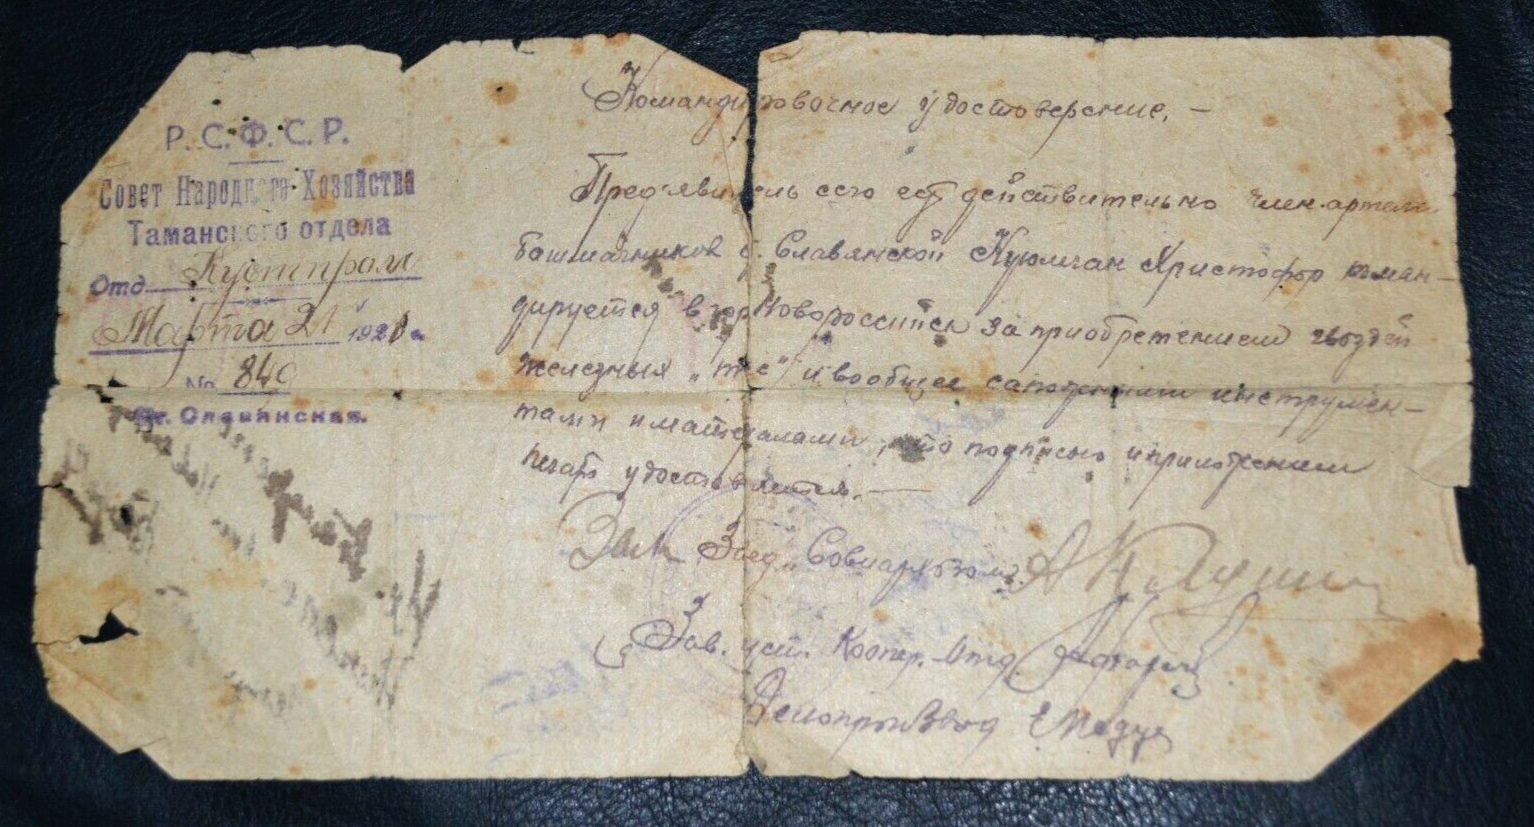 Р.С.Ф.С.Р.
Совет Народного Хозяйства
Таманского отдела
Отд Кустпром
Марта 21 1921 г.
№ 840
Ст. Славянская.
Командировочное удостоверение. —
Предъявитель сего ест действительно член артели
башмачников с. Славянской Куюмчан Христофор коман-
дируется в гор Новороссийск за приобретением гвоздей
железных и вообще сапожными инструмен-
тами и материалами, что подписью и приложением
печати удостоверяется. —
Зам Завед. Совнархозом
Зав. куст. Коопер. Отд.
Делопроизвод